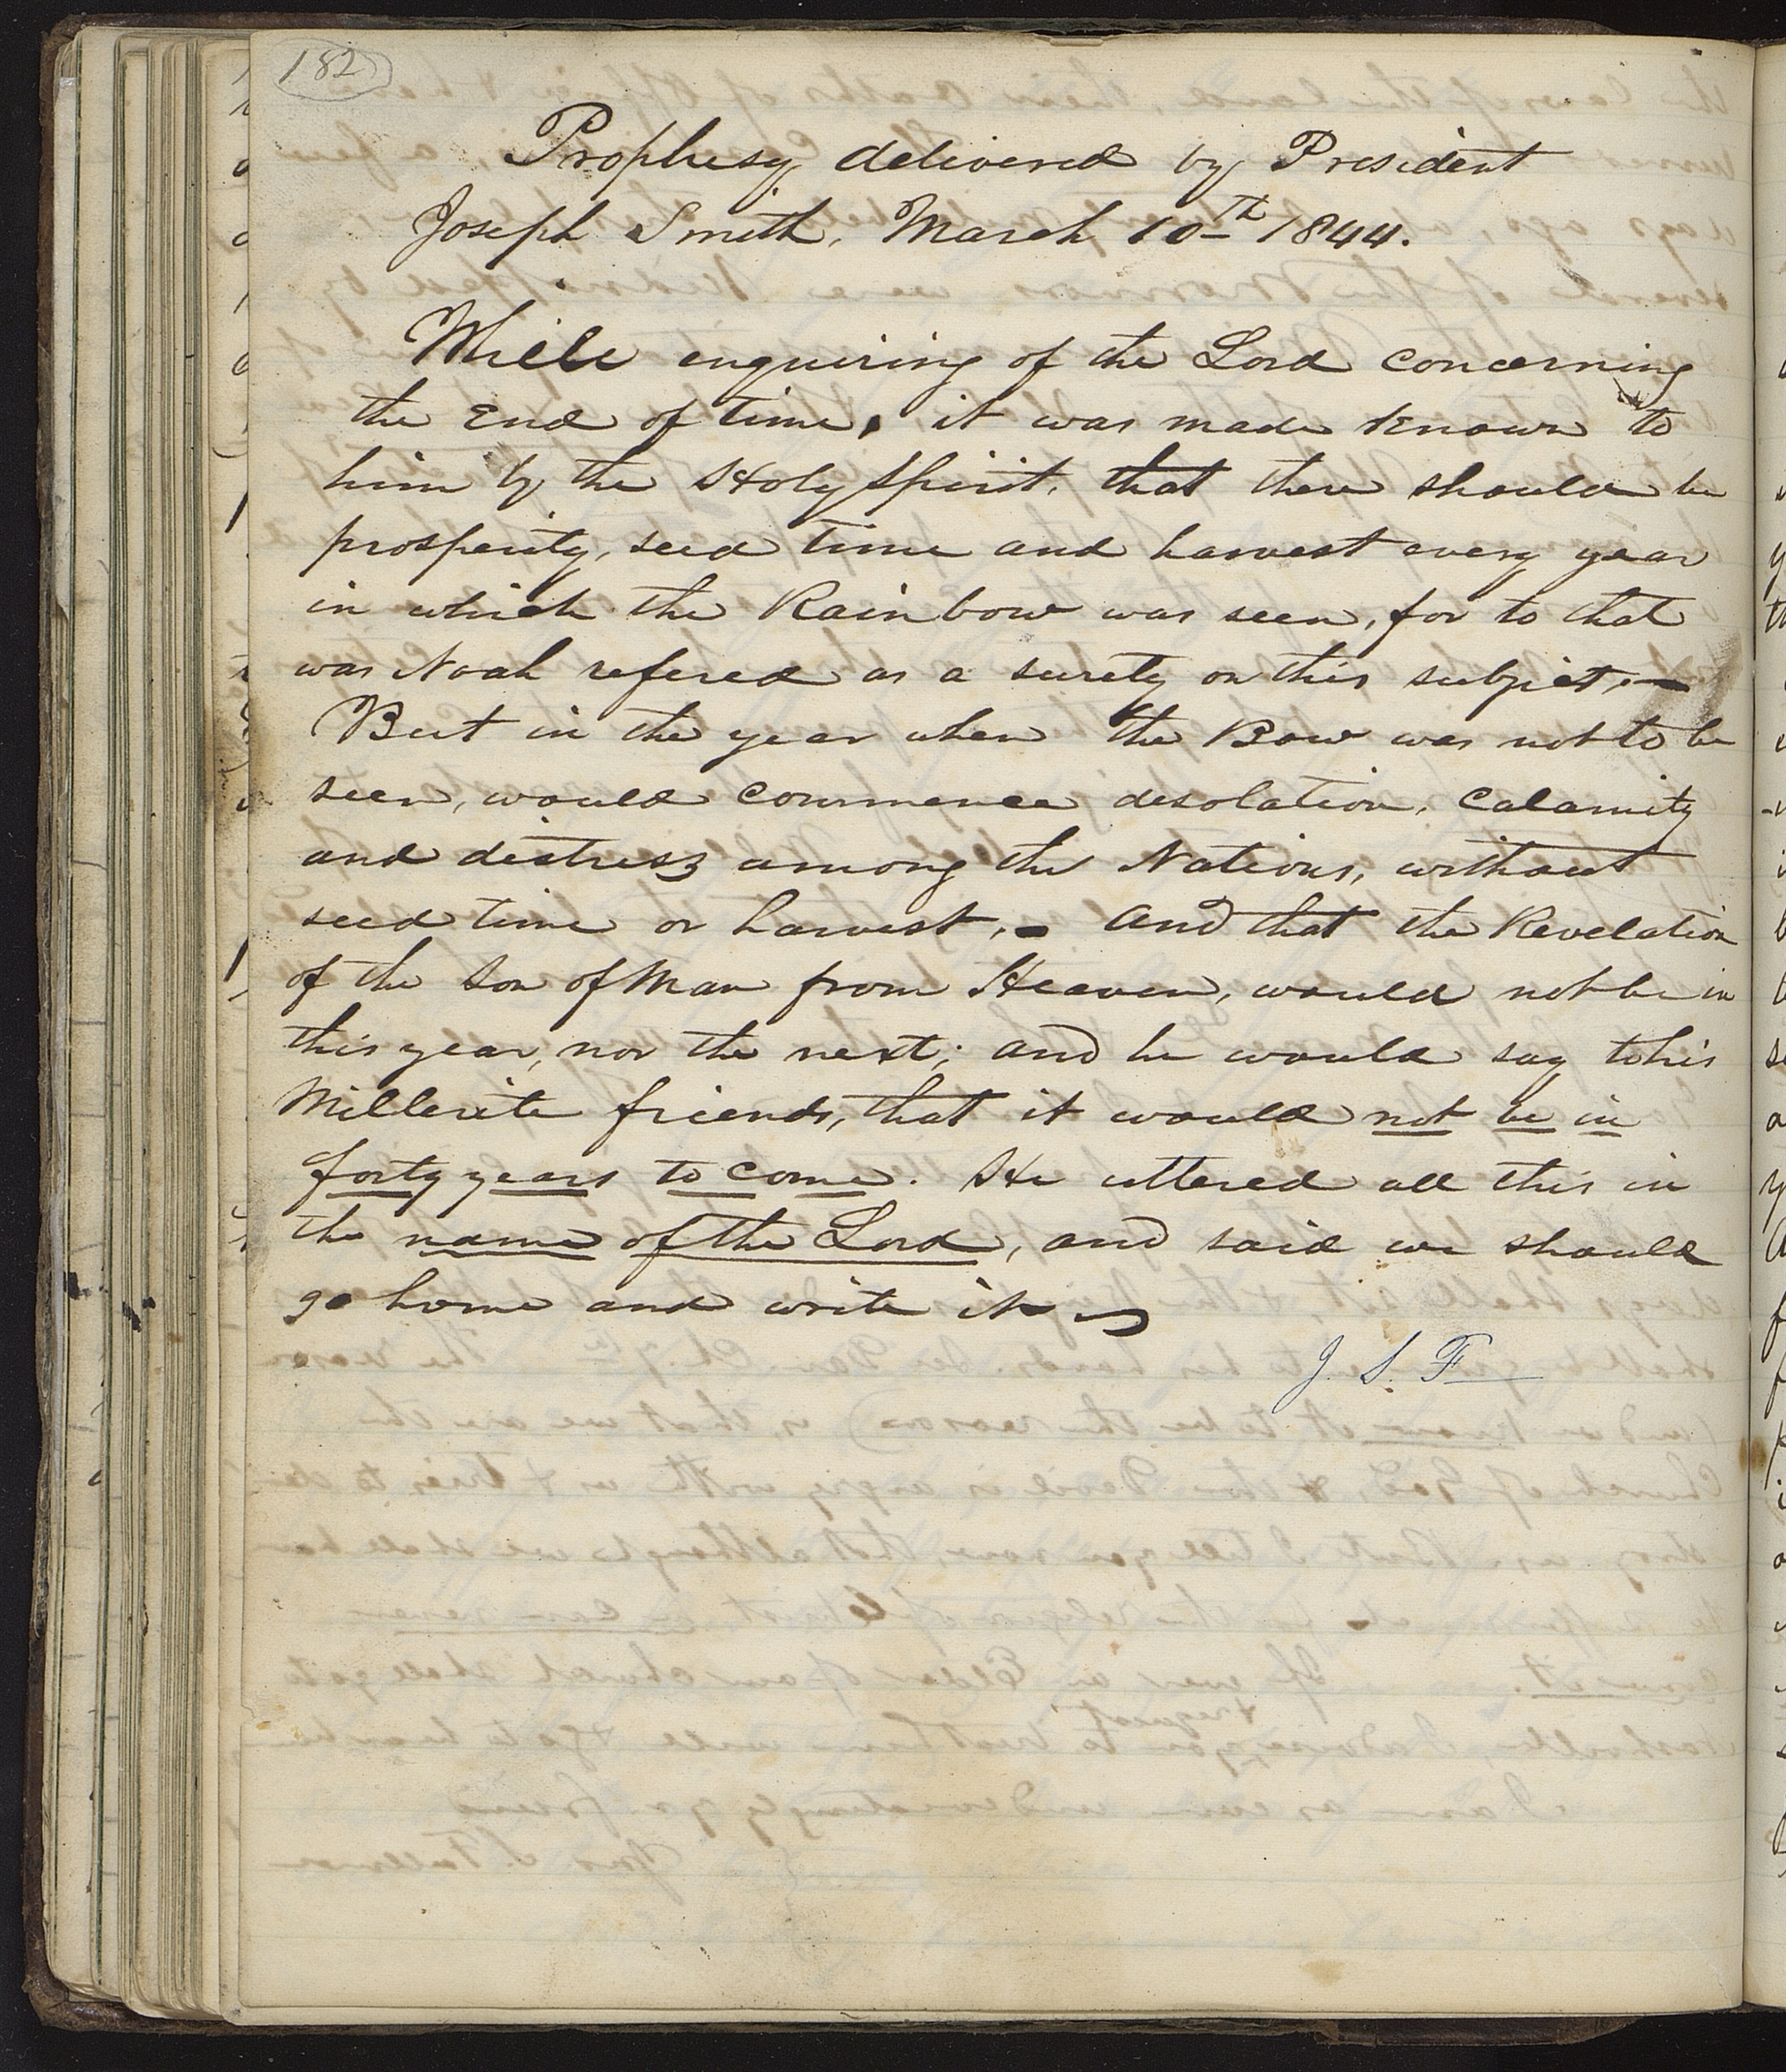 182
Prophesy delivered by President
Joseph Smith, March 10th 1844.
While enquiring of the Lord concerning
the End of time, it was made known to
him by the Holy Spirit, that there should be
prosperity, seed time and harvest every year
in which the Rainbow was seen, for to that
was Noah refered as a surety on this subject,—
But in the year when the Bow was not to be
seen, would commence desolation, calamity
and distress among the Nations, without
seed time or harvest,— and that the Revelation
of the Son of Man from Heaven, would not be in
this year, nor the next; and he would say to his
Millerite friends, that it would not be in
forty years to come. He uttered all this in
the name of the Lord, and said we should
go home and write it
J. S. F